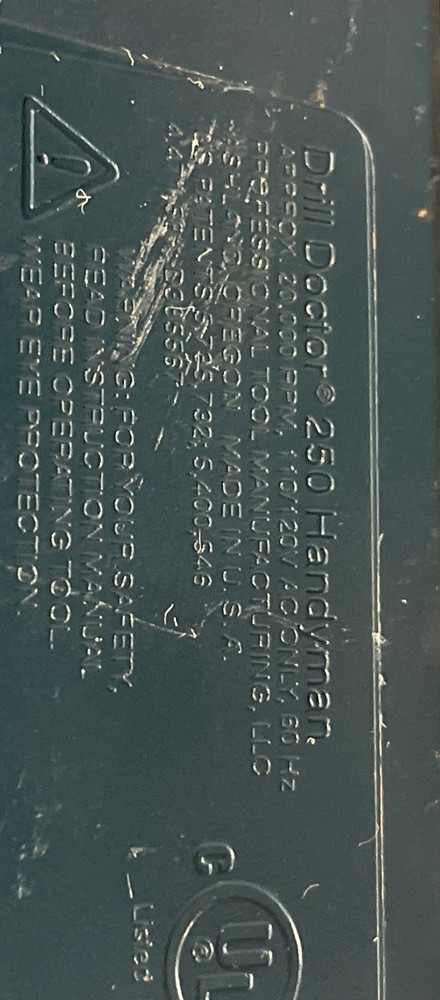 Drill Doctor® 250 Handyman
APPROX. 20,000 RPM, 110/120V AC ONLY, 60 Hz
PROFESSIONAL TOOL MANUFACTURING, LLC
ASHLAND, OREGON MADE IN U.S.A.
PATENTS 732, 6,400,546
WARNING: FOR YOUR SAFETY,
READ INSTRUCTION MANUAL
BEFORE OPERATING TOOL.
WEAR EYE PROTECTION.
C UL ®
Listed